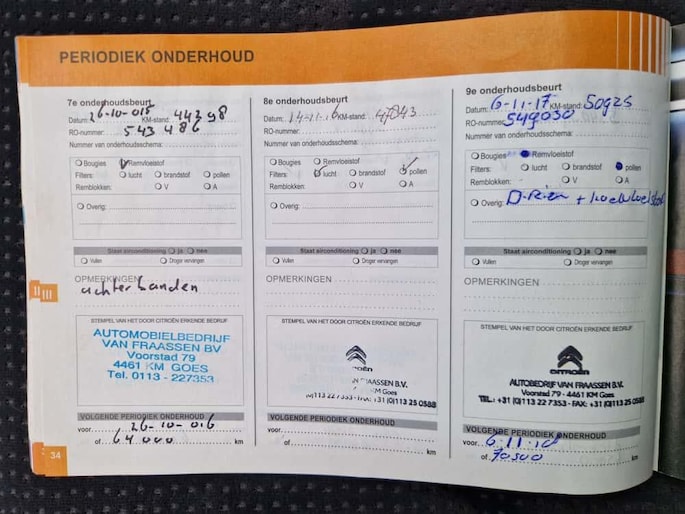 PERIODIEK ONDERHOUD
7e onderhoudsbeurt
Datum: 26-10-015 KM-stand: 44398
RO-nummer: 543486
Nummer van onderhoudsschema:
Bougies Remvloeistof
Filters: lucht brandstof pollen
Remblokken: V A
Overig:
Staat airconditioning ja nee
Vullen Droger vervangen
OPMERKINGEN
achterbanden
STEMPEL VAN HET DOOR CITROËN ERKENDE BEDRIJF
AUTOMOBIELBEDRIJF
VAN FRAASSEN BV
Voorstad 79
4461 KM GOES
Tel. 0113 - 227353
VOLGENDE PERIODIEK ONDERHOUD
voor 26-10-016
of 64000 km
34
8e onderhoudsbeurt
Datum: 14-11-16 KM-stand: 47043
RO-nummer:
Nummer van onderhoudsschema:
Bougies Remvloeistof
Filters: lucht brandstof pollen
Remblokken: V A
Overig:
Staat airconditioning ja nee
Vullen Droger vervangen
OPMERKINGEN
STEMPEL VAN HET DOOR CITROËN ERKENDE BEDRIJF
FRAASSEN B.V.
KM Goes
(0)113 22 7353 - FAX: +31 (0)113 25 0588
VOLGENDE PERIODIEK ONDERHOUD
voor
of km
9e onderhoudsbeurt
Datum: 6-11-17 KM-stand: 50925
RO-nummer: 549030
Nummer van onderhoudsschema:
Bougies Remvloeistof
Filters: lucht brandstof pollen
Remblokken: V A
Overig: D-Riem +
Staat airconditioning ja nee
Vullen Droger vervangen
OPMERKINGEN
STEMPEL VAN HET DOOR CITROËN ERKENDE BEDRIJF
CITROËN
AUTOBEDRIJF VAN FRAASSEN B.V.
Voorstad 79 - 4461 KM Goes
TEL.: +31 (0)113 22 7353 - FAX: +31 (0)113 25 0588
VOLGENDE PERIODIEK ONDERHOUD
voor 6-11-18
of 70500 km